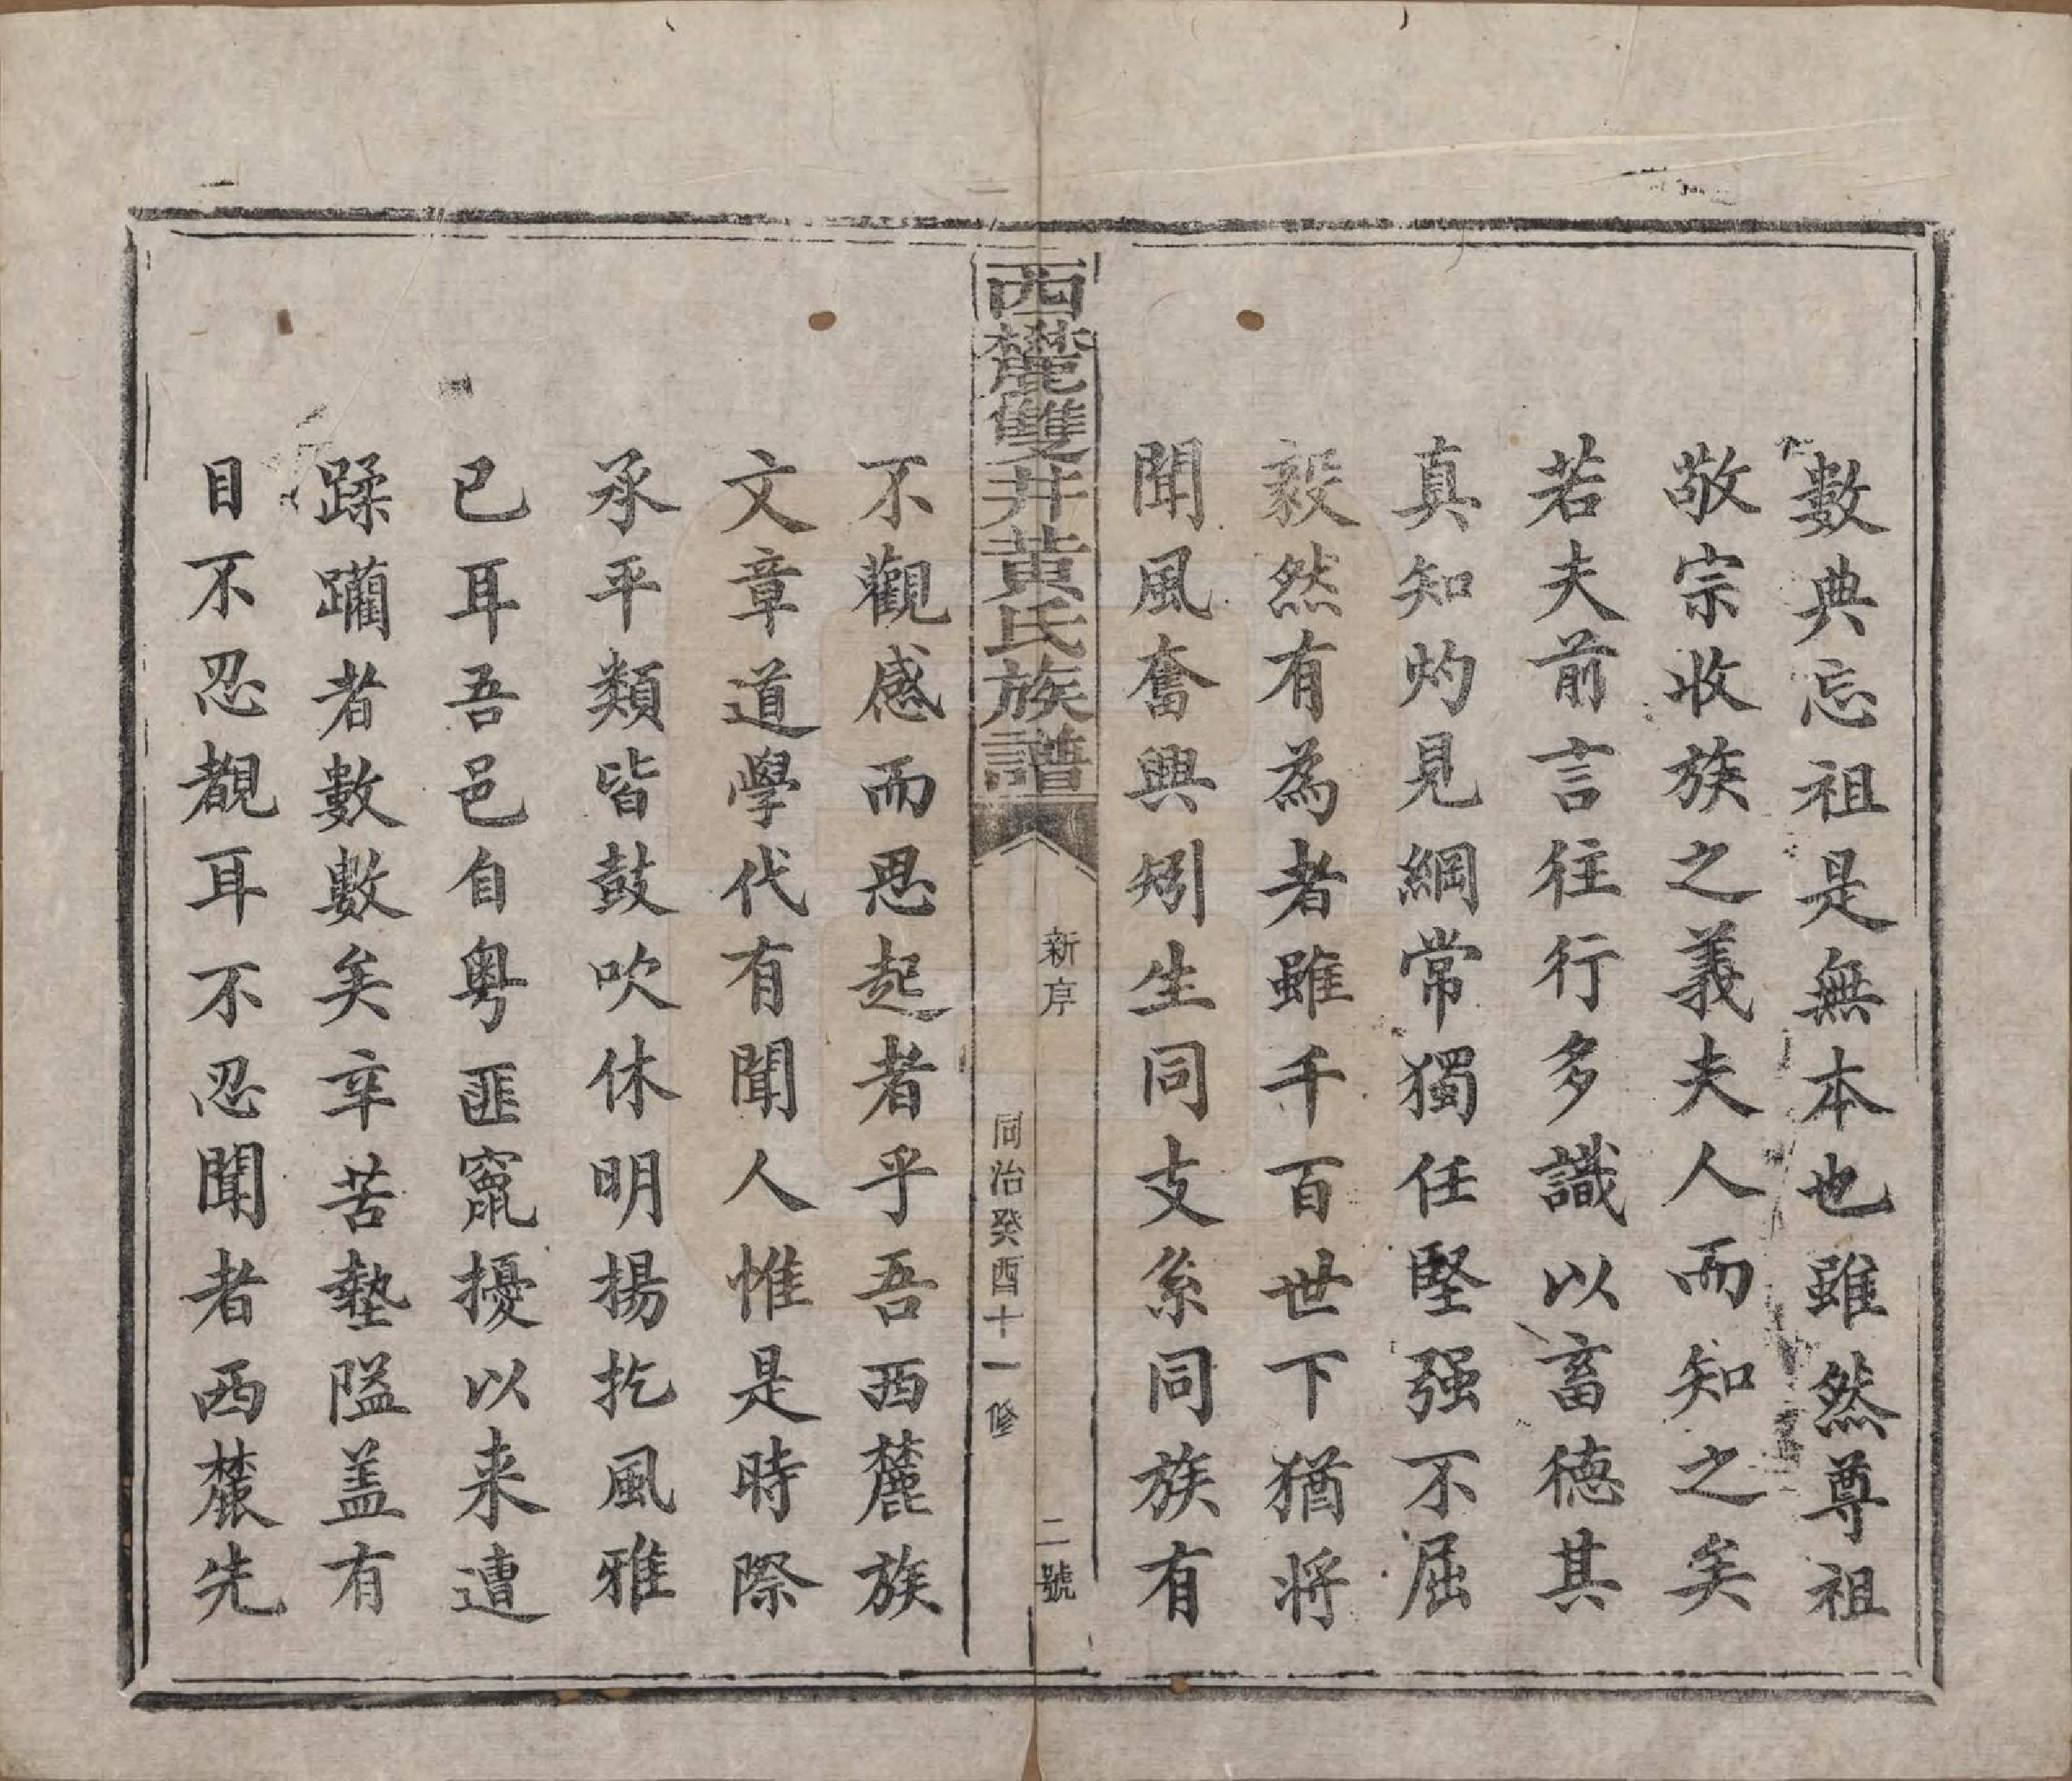 數典忘祖是無本也雖然尊祖
敬宗收族之義夫人而知之矣
若夫前言往行多識以畜德其
真知灼見綱常獨任堅强不屈
毅然有為者雖千百世下猶将
聞風奮興矧生同支系同族有
西麓雙井黃氏族譜
新序
二號
同治癸酉十一修
不觀感而思起者乎吾西麓族
文章道學代有聞人惟是時際
承平類皆鼓吹休明揚扢風雅
已耳吾邑自粤匪竄擾以来遭
蹂躪者數數矣辛苦墊隘盖有
目不忍覩耳不忍聞者西麓先